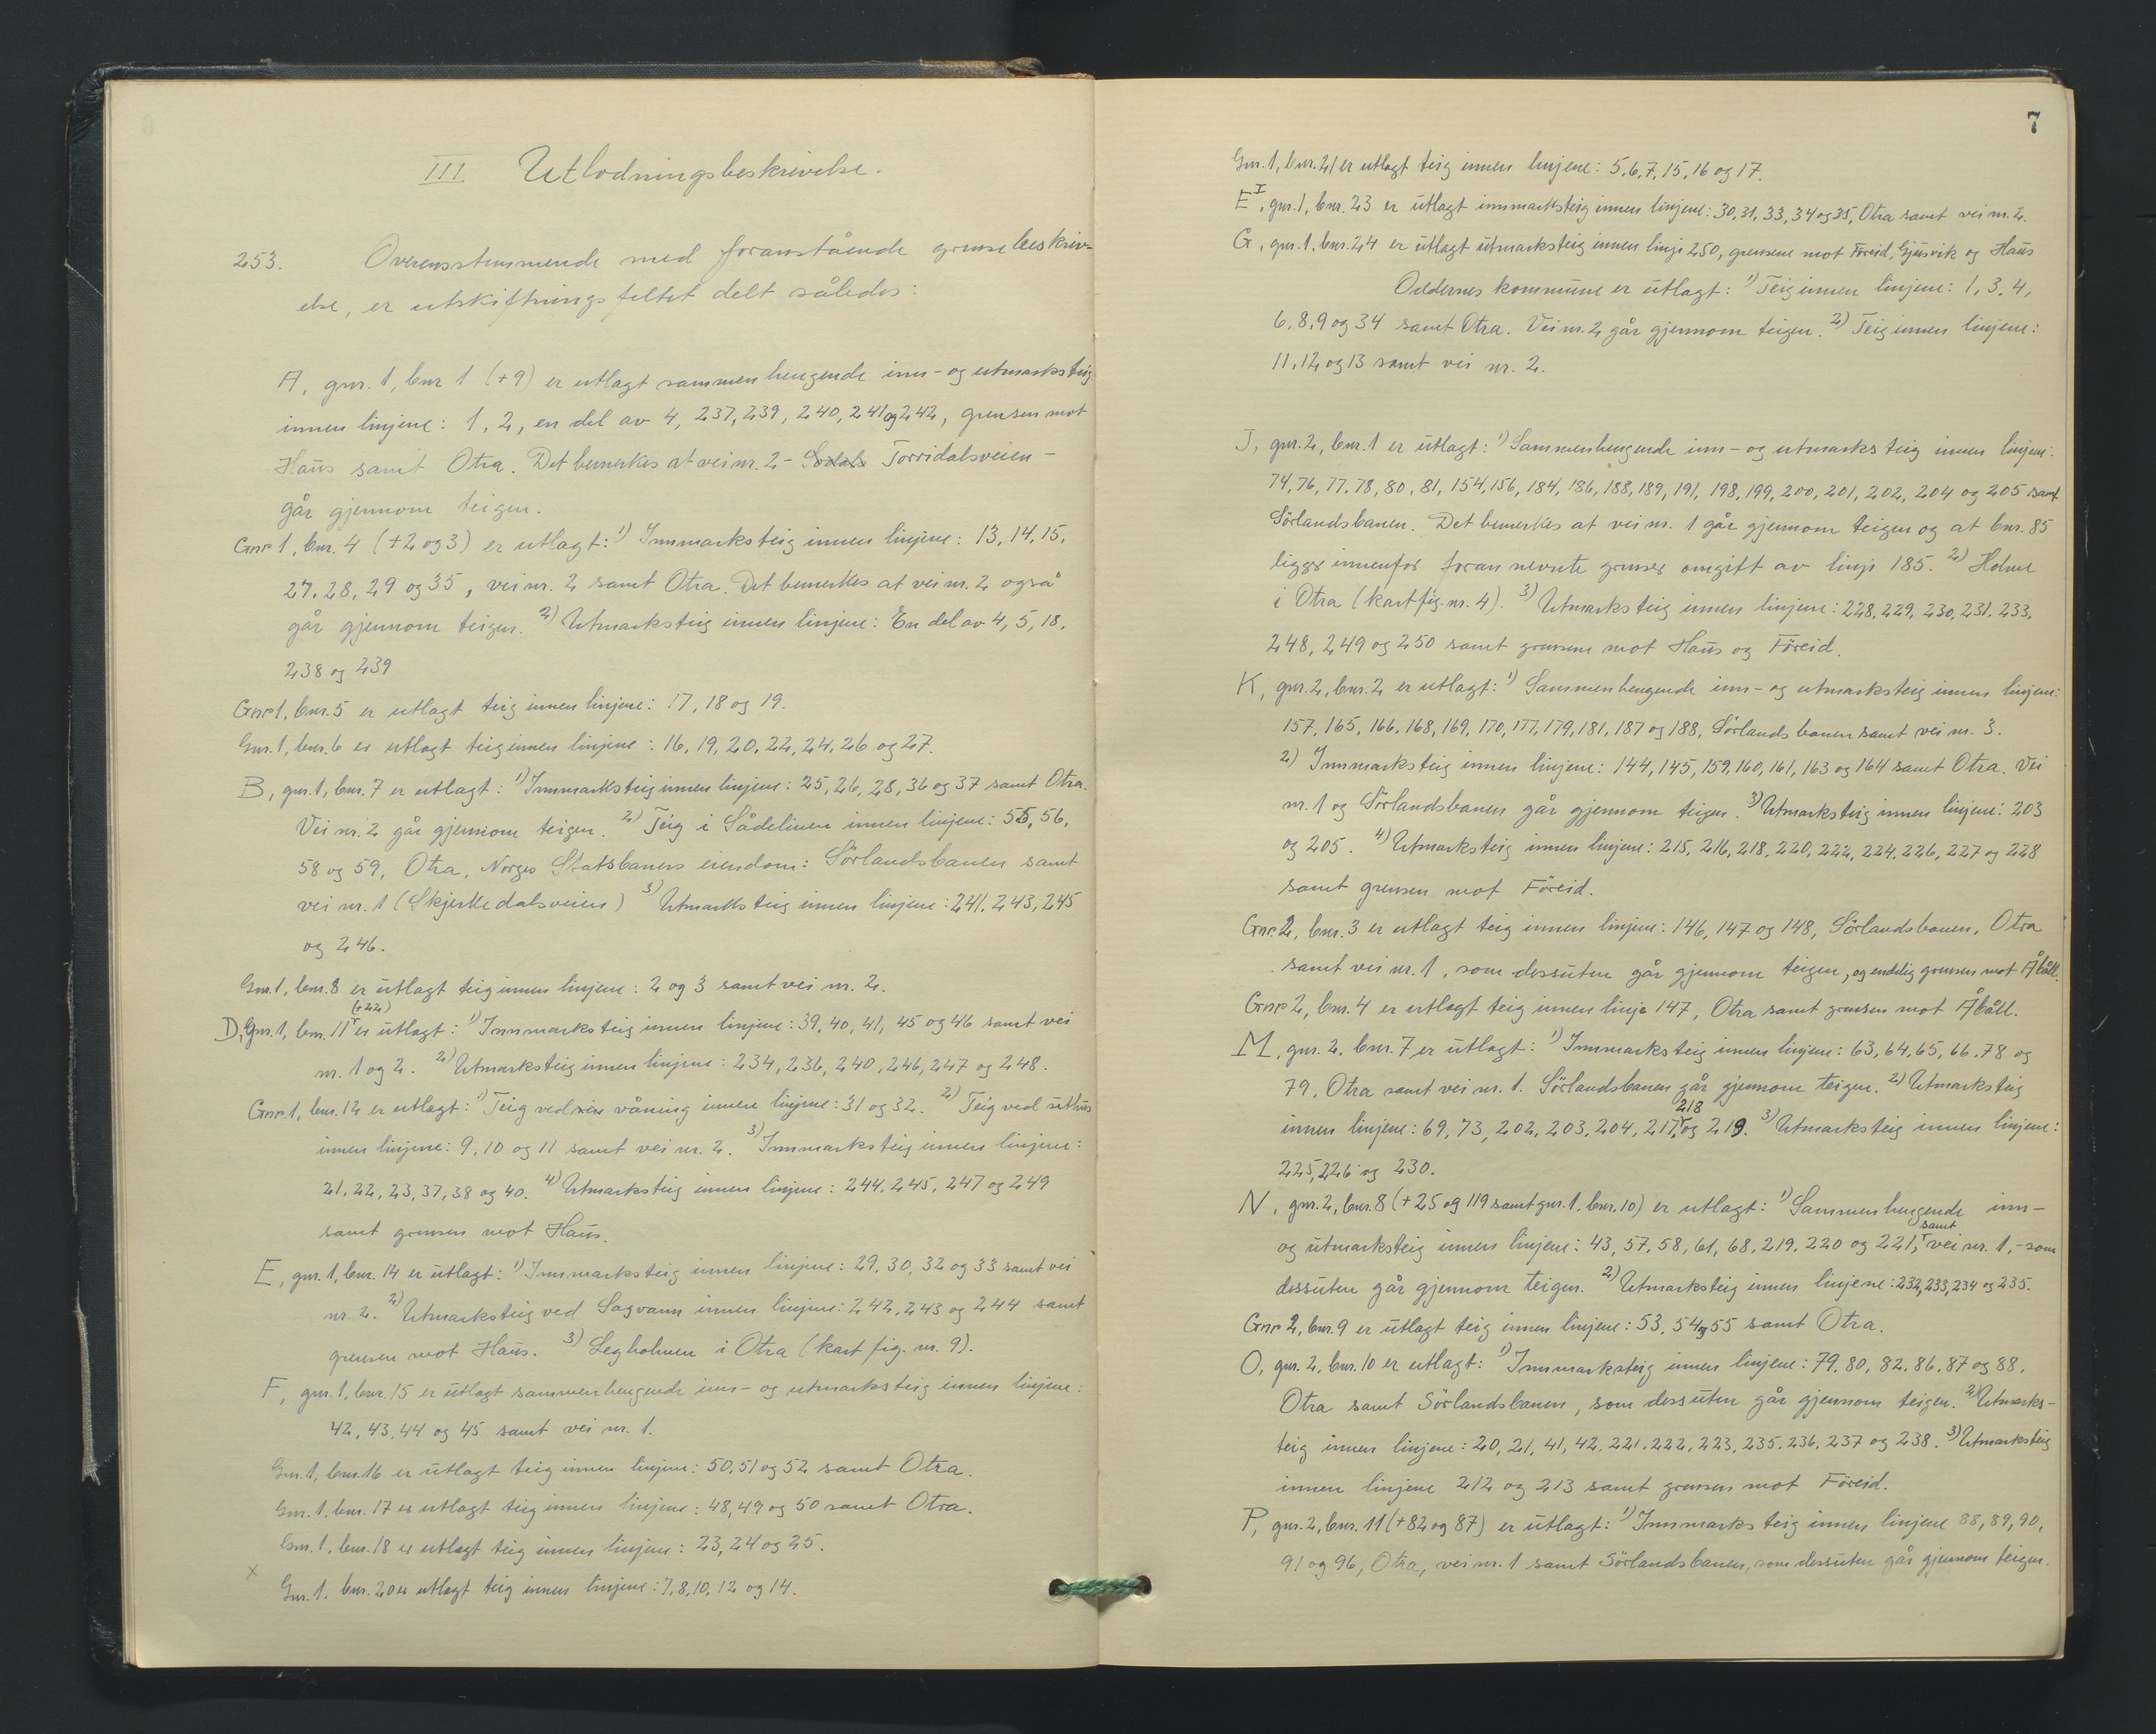 III Utlodningsbeskrivelse.
253. Overensstemmende med foranstående grensebeskriv-
else, er utskiftningsfeltet delt således:
A, gnr. 1, bnr 1 (+9) er utlagt sammenhengende inn- og utmarksteig
innen linjene: 1, 2, en del av 4, 237, 239, 240, 241 og 242, grensen mot
Haus samt Otra. Det bemerkes at vei nr. 2 - Sodals Torridalsveien -
går gjennom teigen.
Gnr 1, bnr. 4 (+2 og 3) er utlagt: 1) Innmarksteig innen linjene: 13, 14, 15,
27, 28, 29 og 35, vei nr. 2 samt Otra. Det bemerkes at vei nr. 2 også
går gjennom teigen. 2) Utmarksteig innen linjene: En del av 4, 5, 18,
238 og 239
Gnr 1, bnr. 5 er utlagt teig innen linjene: 17, 18 og 19.
Gnr. 1, bnr. 6 er utlagt teig innen linjene: 16, 19, 20, 22, 24, 26 og 27.
B, gnr. 1, bnr. 7 er utlagt: 1) Innmarksteig innen linjene: 25, 26, 28, 36 og 37 samt Otra.
Vei nr. 2 går gjennom teigen. 2) Teig i Sådelinen innen linjene: 55, 56,
58 og 59, Otra, Norges Statsbaners eiendom: Sörlandsbanen samt
vei nr. 1 (Skjerkedalsveien) 3) Utmarksteig innen linjene: 241, 243, 245
og 246.
Gnr. 1, bnr. 8 er utlagt teig innen linjene: 2 og 3 samt vei nr. 2.
D, Gnr. 1, bnr. 11 (+22) er utlagt: 1) Innmarksteig innen linjene: 39, 40, 41, 45 og 46 samt vei
nr. 1 og 2. 2) Utmarksteig innen linjene: 234, 236, 240, 246, 247 og 248.
Gnr. 1, bnr. 12 er utlagt: 1) Teig ved våning innen linjene: 31 og 32. 2) Teig ved uthus
innen linjene: 9, 10 og 11 samt vei nr. 2. 3) Innmarksteig innen linjene:
21, 22, 23, 37, 38 og 40. 4) Utmarksteig innen linjene: 244, 245, 247 og 249
samt grensen mot Haus.
E, gnr. 1, bnr. 14 er utlagt: 1) Innmarksteig innen linjene: 29, 30, 32 og 33 samt vei
nr. 2. 2) Utmarksteig ved Sagvann innen linjene: 242, 243 og 244 samt
grensen mot Haus. 3) Legholmen i Otra (kart fig. nr. 9).
F, gnr. 1, bnr. 15 er utlagt sammenhengende inn- og utmarksteig innen linjene:
42, 43, 44 og 45 samt vei nr. 1.
Gnr. 1, bnr. 16 er utlagt teig innen linjene: 50, 51 og 52 samt Otra.
Gnr. 1, bnr. 17 er utlagt teig innen linjene: 48, 49 og 50 samt Otra.
Gnr. 1, bnr. 18 er utlagt teig innen linjene: 23, 24 og 25.
x Gnr. 1, bnr. 20 er utlagt teig innen linjene: 7, 8, 10, 12 og 14.
7
Gnr. 1, bnr. 21 er utlagt teig innen linjene: 5, 6, 7, 15, 16 og 17.
E I, gnr. 1, bnr. 23 er utlagt innmarksteig innen linjene: 30, 31, 33, 34 og 35, Otra samt vei nr. 2.
G, gnr. 1, bnr. 24 er utlagt utmarksteig innen linje 250, grensene mot Föreid, Gjusvik og Haus
Oddernes kommune er utlagt: 1) Teig innen linjene: 1, 3, 4,
6, 8, 9 og 34 samt Otra. Vei nr. 2 går gjennom teigen. 2) Teig innen linjene:
11, 12 og 13 samt vei nr. 2.
J, gnr. 2, bnr. 1 er utlagt: 1) Sammenhengende inn- og utmarksteig innen linjene:
74, 76, 77, 78, 80, 81, 154, 156, 184, 186, 188, 189, 191, 198, 199, 200, 201, 202, 204 og 205 samt
Sörlandsbanen. Det bemerkes at vei nr. 1 går gjennom teigen og at bnr. 85
ligger innenfor foran nevnte grenser omgitt av linje 185. 2) Holme
i Otra (kartfig. nr. 4). 3) Utmarksteig innen linjene: 228, 229, 230, 231, 233,
248, 249 og 250 samt grensene mot Haus og Föreid.
K, gnr. 2, bnr. 2 er utlagt: 1) Sammenhengende inn- og utmarksteig innen linjene:
157, 165, 166, 168, 169, 170, 177, 179, 181, 187 og 188, Sörlandsbanen samt vei nr. 3.
2) Innmarksteig innen linjene: 144, 145, 159, 160, 161, 163 og 164 samt Otra. Vei
nr. 1 og Sörlandsbanen går gjennom teigen. 3) Utmarksteig innen linjene: 203
og 205. 4) Utmarksteig innen linjene: 215, 216, 218, 220, 222, 224, 226, 227 og 228
samt grensen mot Föreid.
Gnr. 2, bnr. 3 er utlagt teig innen linjene: 146, 147 og 148, Sörlandsbanen, Otra
samt vei nr. 1, som dessuten går gjennom teigen, og endelig grensen mot Åbåll.
Gnr 2, bnr. 4 er utlagt teig innen linje 147, Otra samt grensen mot Åbåll.
M, gnr. 2, bnr. 7 er utlagt: 1) Innmarksteig innen linjene: 63, 64, 65, 66, 78 og
79, Otra samt vei nr. 1. Sörlandsbanen går gjennom teigen. 2) Utmarksteig
innen linjene: 69, 73, 202, 203, 204, 217, 218 og 219. 3) Utmarksteig innen linjene:
225, 226 og 230.
N, gnr. 2, bnr. 8 (+25 og 119 samt gnr. 1, bnr. 10) er utlagt: 1) Sammenhengende inn-
og utmarksteig innen linjene: 43, 57, 58, 61, 68, 219, 220 og 221, samt vei nr. 1, - som
dessuten går gjennom teigen. 2) Utmarksteig innen linjene: 232, 233, 234 og 235.
Gnr 2, bnr. 9 er utlagt teig innen linjene: 53, 54 og 55 samt Otra.
O, gnr. 2, bnr. 10 er utlagt: 1) Innmarksteig innen linjene: 79, 80, 82, 86, 87 og 88,
Otra samt Sörlandsbanen, som dessuten går gjennom teigen. 2) Utmarks-
teig innen linjene: 20, 21, 41, 42, 221, 222, 223, 235, 236, 237 og 238. 3) Utmarksteig
innen linjene 212 og 213 samt grensen mot Föreid.
P, gnr. 2, bnr. 11 (+82 og 87) er utlagt: 1) Innmarksteig innen linjene 88, 89, 90,
91 og 96, Otra, vei nr. 1 samt Sörlandsbanen, som dessuten går gjennom teigen.